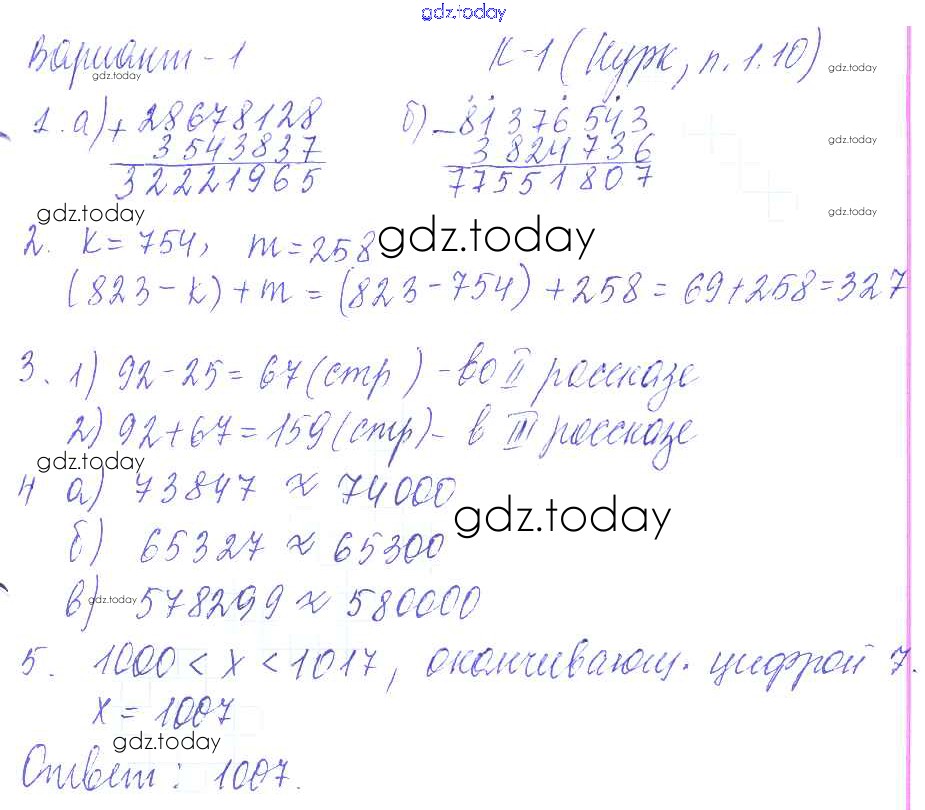 gdz.today
Вариант - 1 К-1 (Нурк, п. 1.10)
gdz.today gdz.today
1. а) + 28678128 б) - 81376543
3543837 3824736
32221965 77551807
gdz.today
gdz.today gdz.today
2. k = 754, m = 258 gdz.today
(823 - k) + m = (823 - 754) + 258 = 69 + 258 = 327
3. 1) 92 - 25 = 67 (стр) - во II рассказе
2) 92 + 67 = 159 (стр) - в III рассказе
gdz.today
4 а) 73847 ≈ 74000
gdz.today
б) 65327 ≈ 65300
в) 578299 ≈ 580000
gdz.today
5. 1000 < x < 1017, оканчивающ. цифрой 7.
x = 1007
gdz.today
Ответ: 1007.